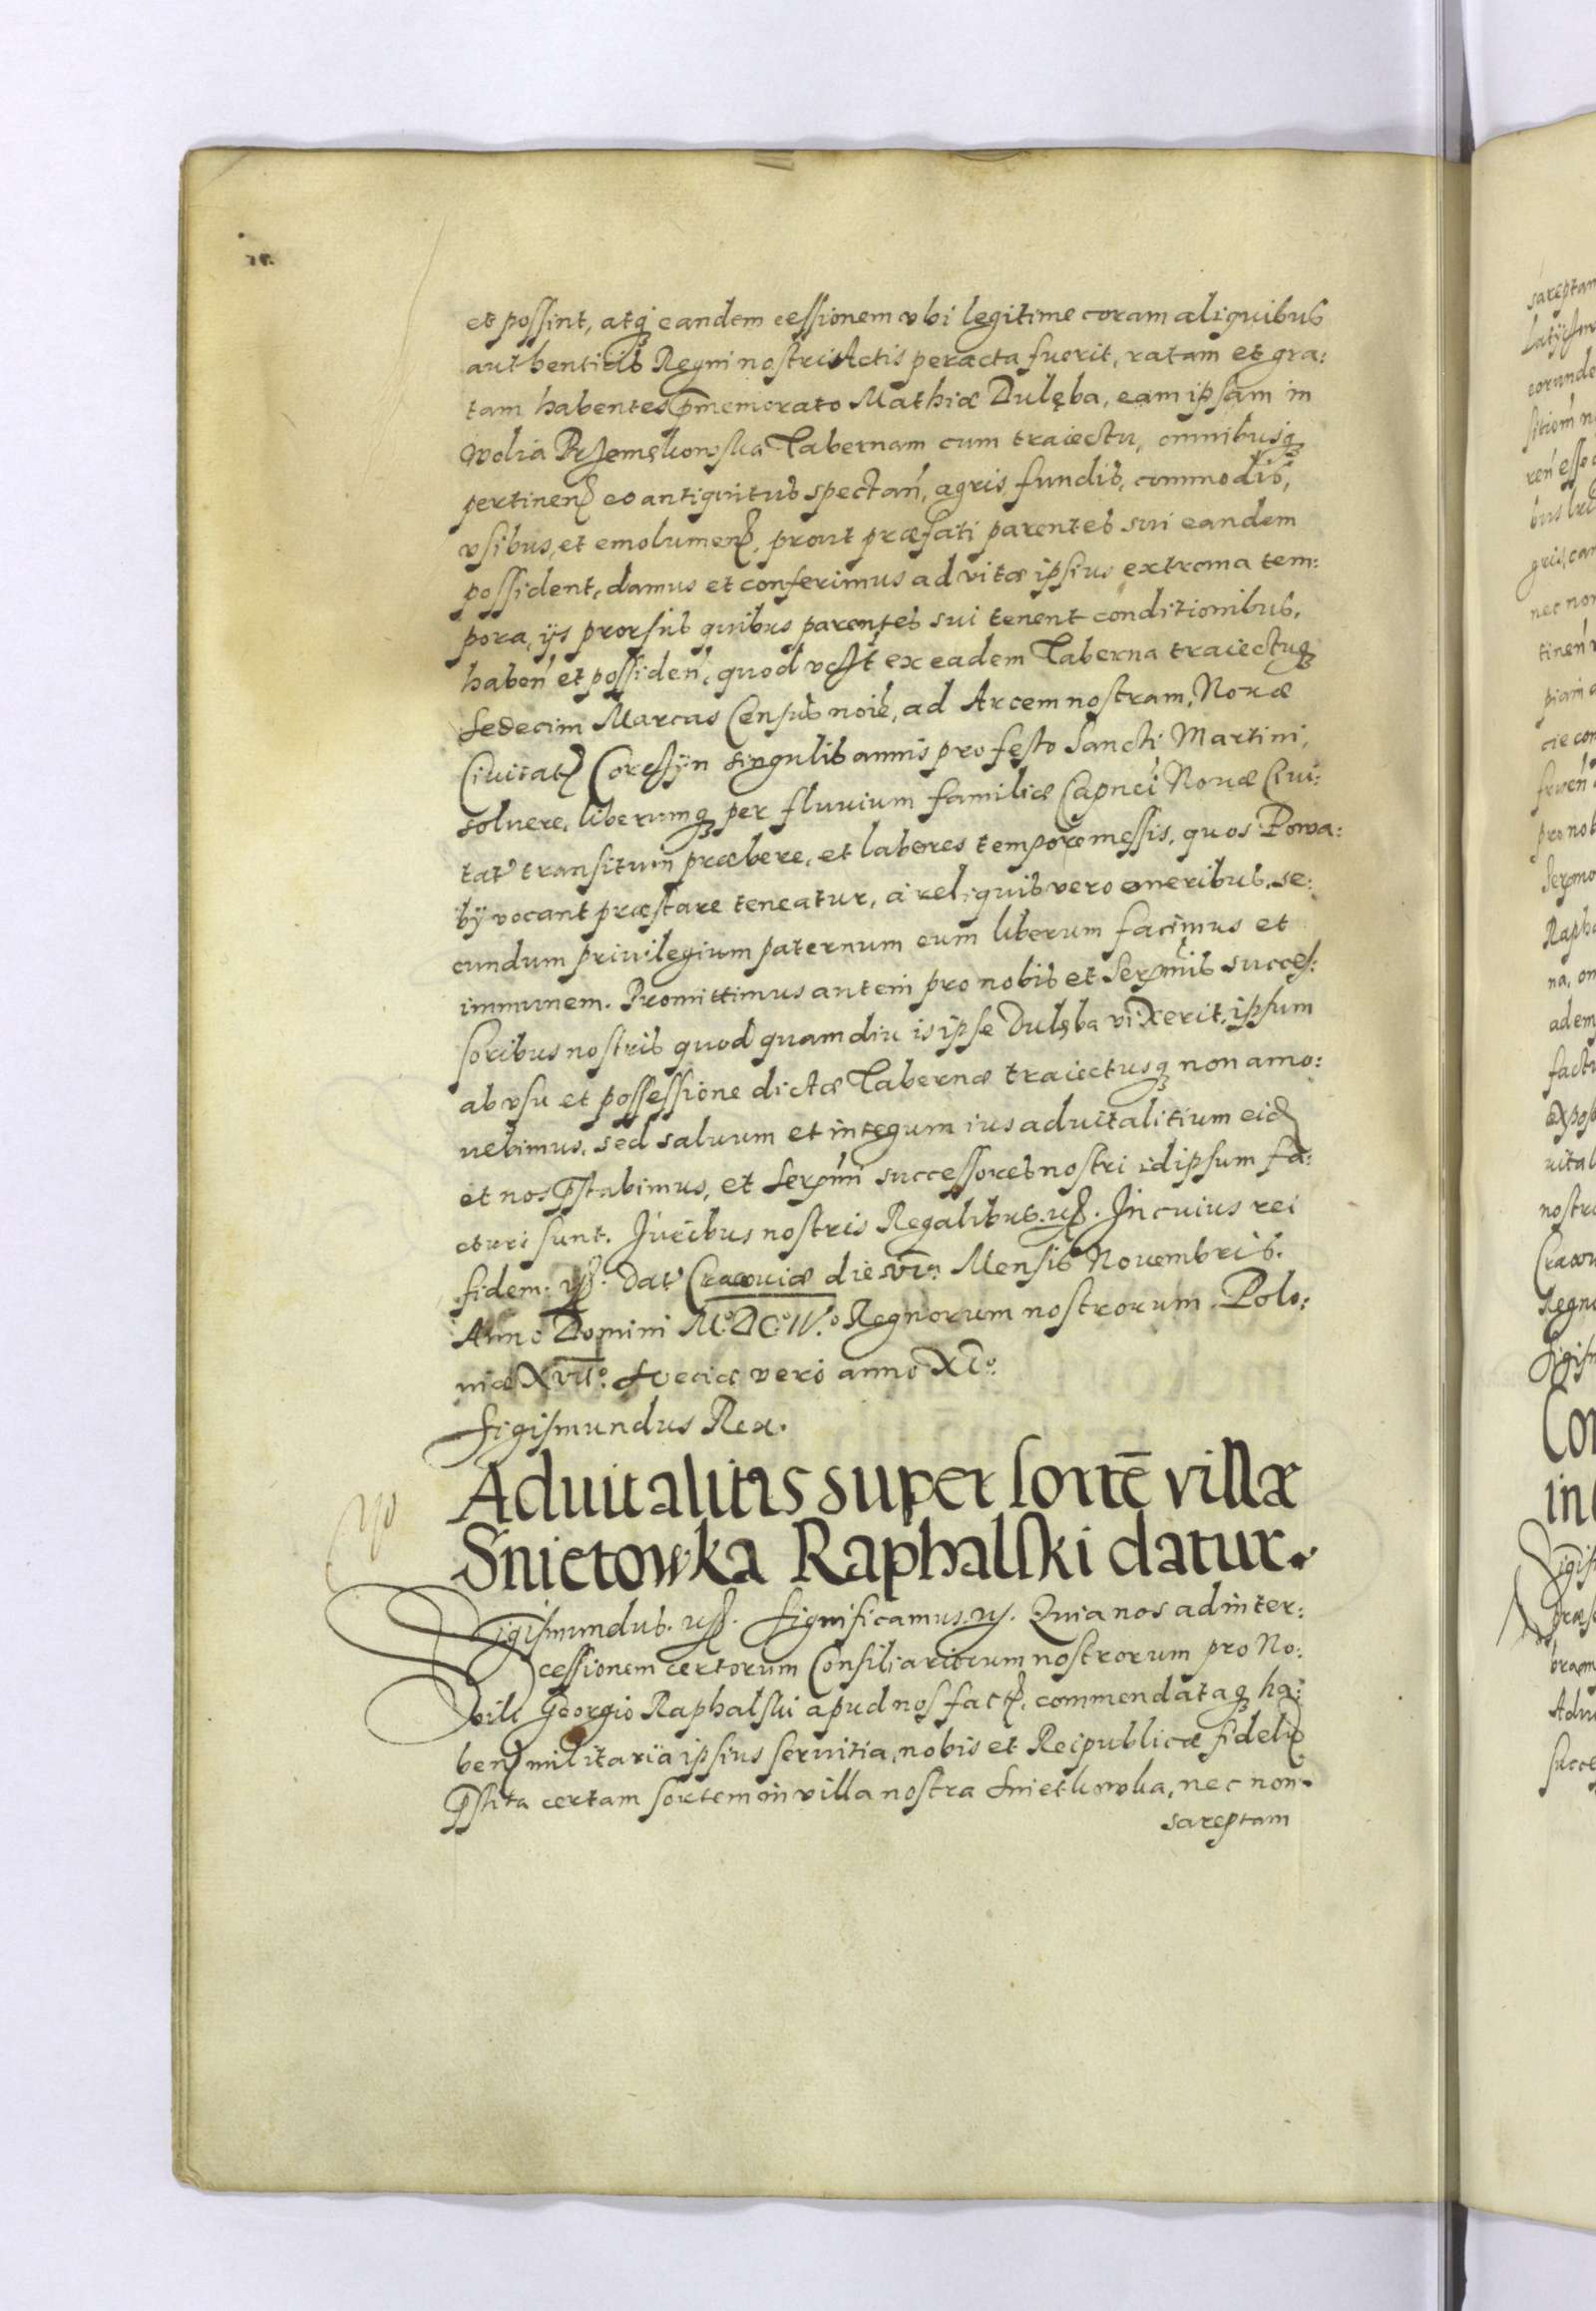 et possint, atq́ eandem cessionem vbi legitime coram aliquibus
authenticis Regni nostri Actis peracta fuerit, ratam et gra:
tam habentes p̄memorato Mathiæ Dulęba, eam ipsam in
Wolia Przemykowska Tabernam cum traiectu, omnibusq́
pertinen̄ eo antiquitus spectan̄, agris, fundis, commodis,
vsibus, et emolumen̄, prout præfati parentes sui eandem
possident, damus et conferimus ad vitæ ipsius extrema tem:
pora, ijs prorsus quibus parentes sui tenent conditionibus,
haben̄ et possiden̄, quod vt ex eadem Taberna traiectuq́
Sedecim Marcas Census noïe, ad Arcem nostram, Nouæ
Ciuitat Corczyn singulis annis pro festo Sancti Martini,
soluere, liberumq́ per fluuium familiæ Capnei Nouæ Ciui:
tat transitum præbere, et labores tempore messis, quos Powa:
by vocant præstare teneatur, à reliquis vero oneribus, se:
cundum priuilegium paternum eum liberum facimus et
immunem. Promittimus autem pro nobis et Serm̄is succes:
soribus nostris quod quamdiu is ipse Dulęba vixerit, ipsum
ab vsu et possessione dictæ Tabernæ traiectusq́ non amo:
uebimus, sed saluum et integum ius aduitalitium eid
et nos p̄stabimus, et Serm̄i successores nostri id ipsum fa:
cturi sunt. Juribus nostris Regalibus. Jn cuius rei
fidem. Dat Cracouiæ die VI Mensis Nouembris.
Anno Domini M.DC.IV. Regnorum nostrorum Polo:
niæ XVII. Sueciæ vero anno XI.
Sigismundus Rex.
Aduitalitis super sortē villæ
Snietowka Raphalski datur.
Sigismundus. Significamus. Quia nos ad inter:
cessionem certorum Consiliariorum nostrorum pro No:
bili Georgio Raphalski apud nos fact, commendataq́ ha:
ben militaria ipsius seruitia, nobis et Reipublicæ fideli
p̄stita certam sortem in villa nostra Snietkowka, nec non
sareptam